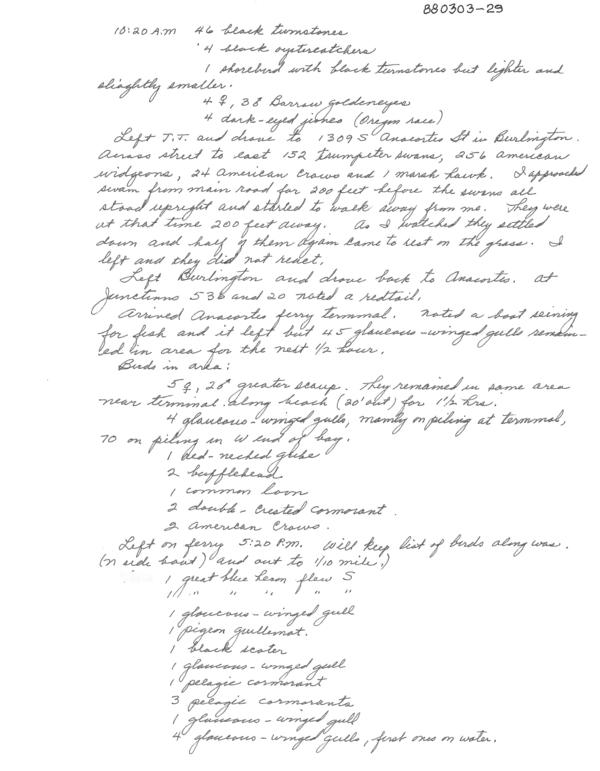 880303-29
10:20 A.M 46 black turnstones
4 black oystercatchers
1 shorebird with black turnstones but lighter and
sliaghtly smaller.
4 ♀, 3♂ Barrow goldeneyes
4 dark-eyed juncos (Oregon race)
Left T.T. and drove to 1309 S Anacortes St in Burlington.
Across street to east 152 trumpeter swans, 256 american
widgeons, 24 American Crows and 1 marsh hawk. I approached
swan from main road for 200 feet before the swans all
stood upright and started to walk away from me. They were
at that time 200 feet away. As I watched they settled
down and half of them again came to rest on the grass. I
left and they did not react.
Left Burlington and drove back to Anacortes. at
Junctions 536 and 20 noted a redtail.
Arrived Anacortes ferry terminal. Noted a boat seining
for fish and it left but 45 glaucous-winged gulls remain-
ed in area for the next 1/2 hour.
Birds in area:
5 ♀, 2♂ greater scaup. They remained in same area
near terminal along beach (20' out) for 1 1/2 hrs.
4 glaucous-winged gulls, mainly on piling at terminal,
70 on piling in W end of bay.
1 red-necked grebe
2 bufflehead
1 common loon
2 double-crested cormorant.
2 american Crows.
Left on ferry 5:20 P.m. Will keep list of birds along was.
(N side boat) and out to 1/10 mile.)
1 great blue heron flew S
1 " " " " "
1 glaucous-winged gull
1 pigeon guillemot.
1 black scoter
1 glaucous-winged gull
1 pelagic cormorant
3 pelagic cormorants
1 glaucous-winged gull
4 glaucous-winged gulls, first ones on water.